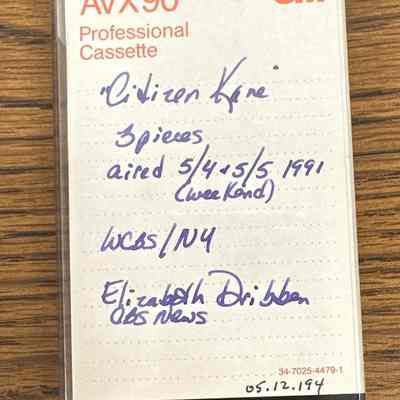 AVX90
Professional
Cassette
"Citizen Kane"
3 pieces
aired 5/4 + 5/5 1991
(weekend)
WCBS/NY
Elizabeth Dribben
CBS News
34-7025-4479-1
05.12.194